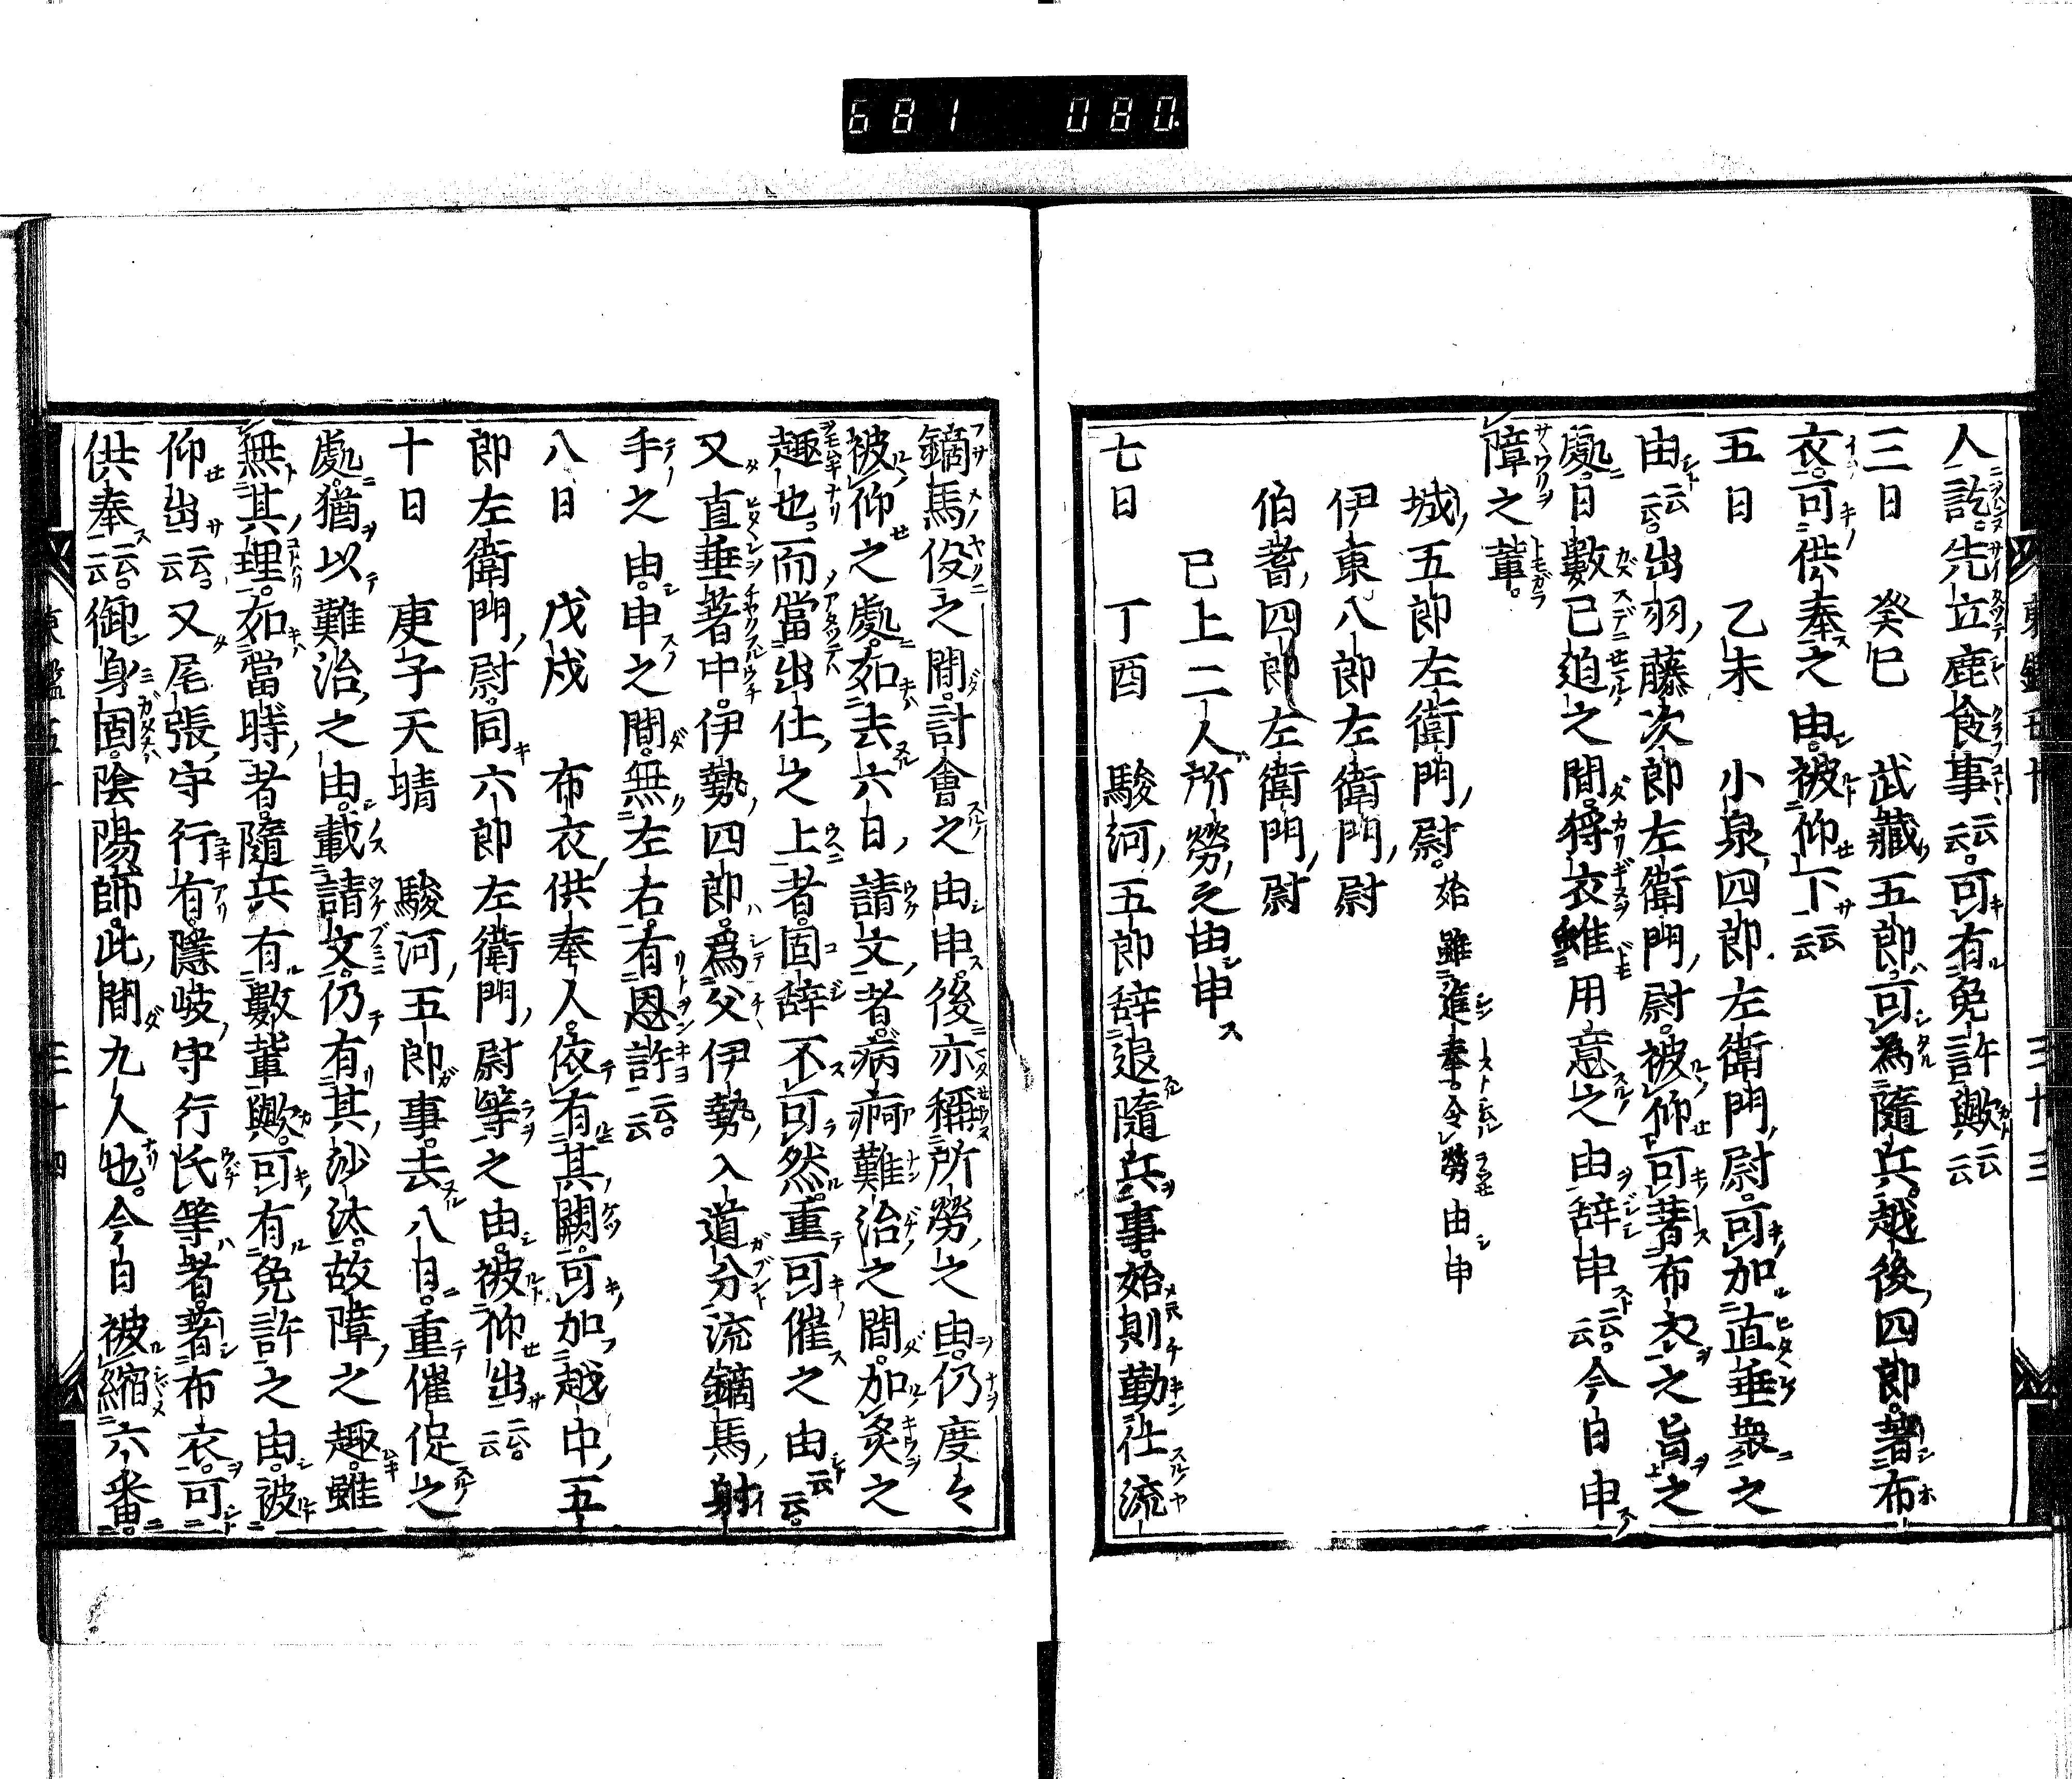 681 080
人訖先立鹿食事云云可有免許歟云云
三日　癸巳　武藏五郎可為隨兵越後四郎著布
衣可供奉之由被仰下云云
五日　乙未　小泉四郎左衛門尉可加直垂衆之
由云云出羽藤次郎左衛門尉被仰可著布衣之旨之
處日數已迫之間狩衣雖用意之由辞申云云今日申
障之輩
城五郎左衛門尉始雖進奉令勞由申
伊東八郎左衛門尉
伯耆四郎左衛門尉
已上二人所勞之由申
七日　丁酉　駿河五郎辞退隨兵事始則勤仕流
鏑馬役之間計會之由申後亦稱所勞之由仍度々
被仰之處如去六日請文者病痾難治之間加灸之
趣也而當出仕之上者固辞不可然重可催之由云云
又直垂著中伊勢四郎為父伊勢入道分流鏑馬射
手之由申之間無左右有恩許云云
八日　戊戌　布衣供奉人依有其闕可加越中五
郎左衛門尉同六郎左衛門尉等之由被仰出云云
十日　庚子天晴　駿河五郎事去八日重催促之
處猶以難治之由載請文仍有其沙汰故障之趣雖
無其理如當時者隨兵有數輩歟可有免許之由被
仰出云云又尾張守行有隱岐守行氏等者著布衣可
供奉云云御身固陰陽師此間九人也今日被縮六番